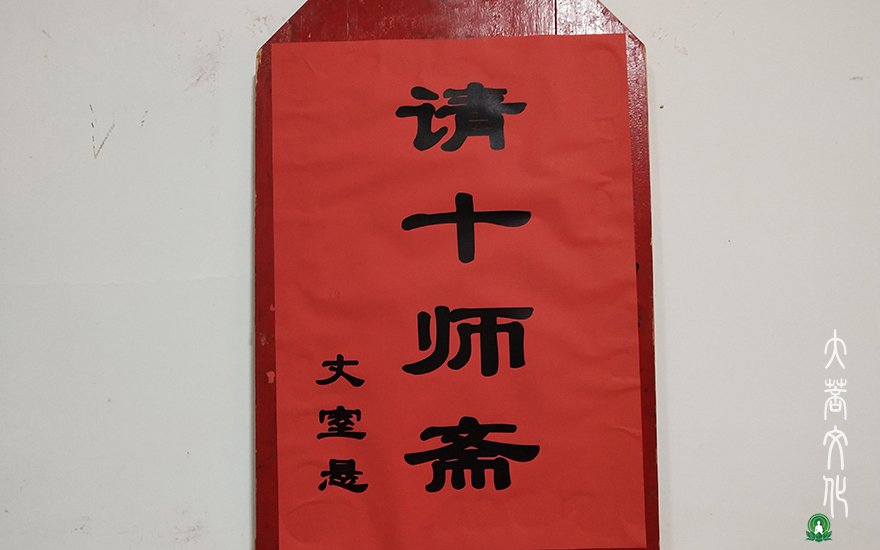 请十师斋
丈室悬
大菩文化